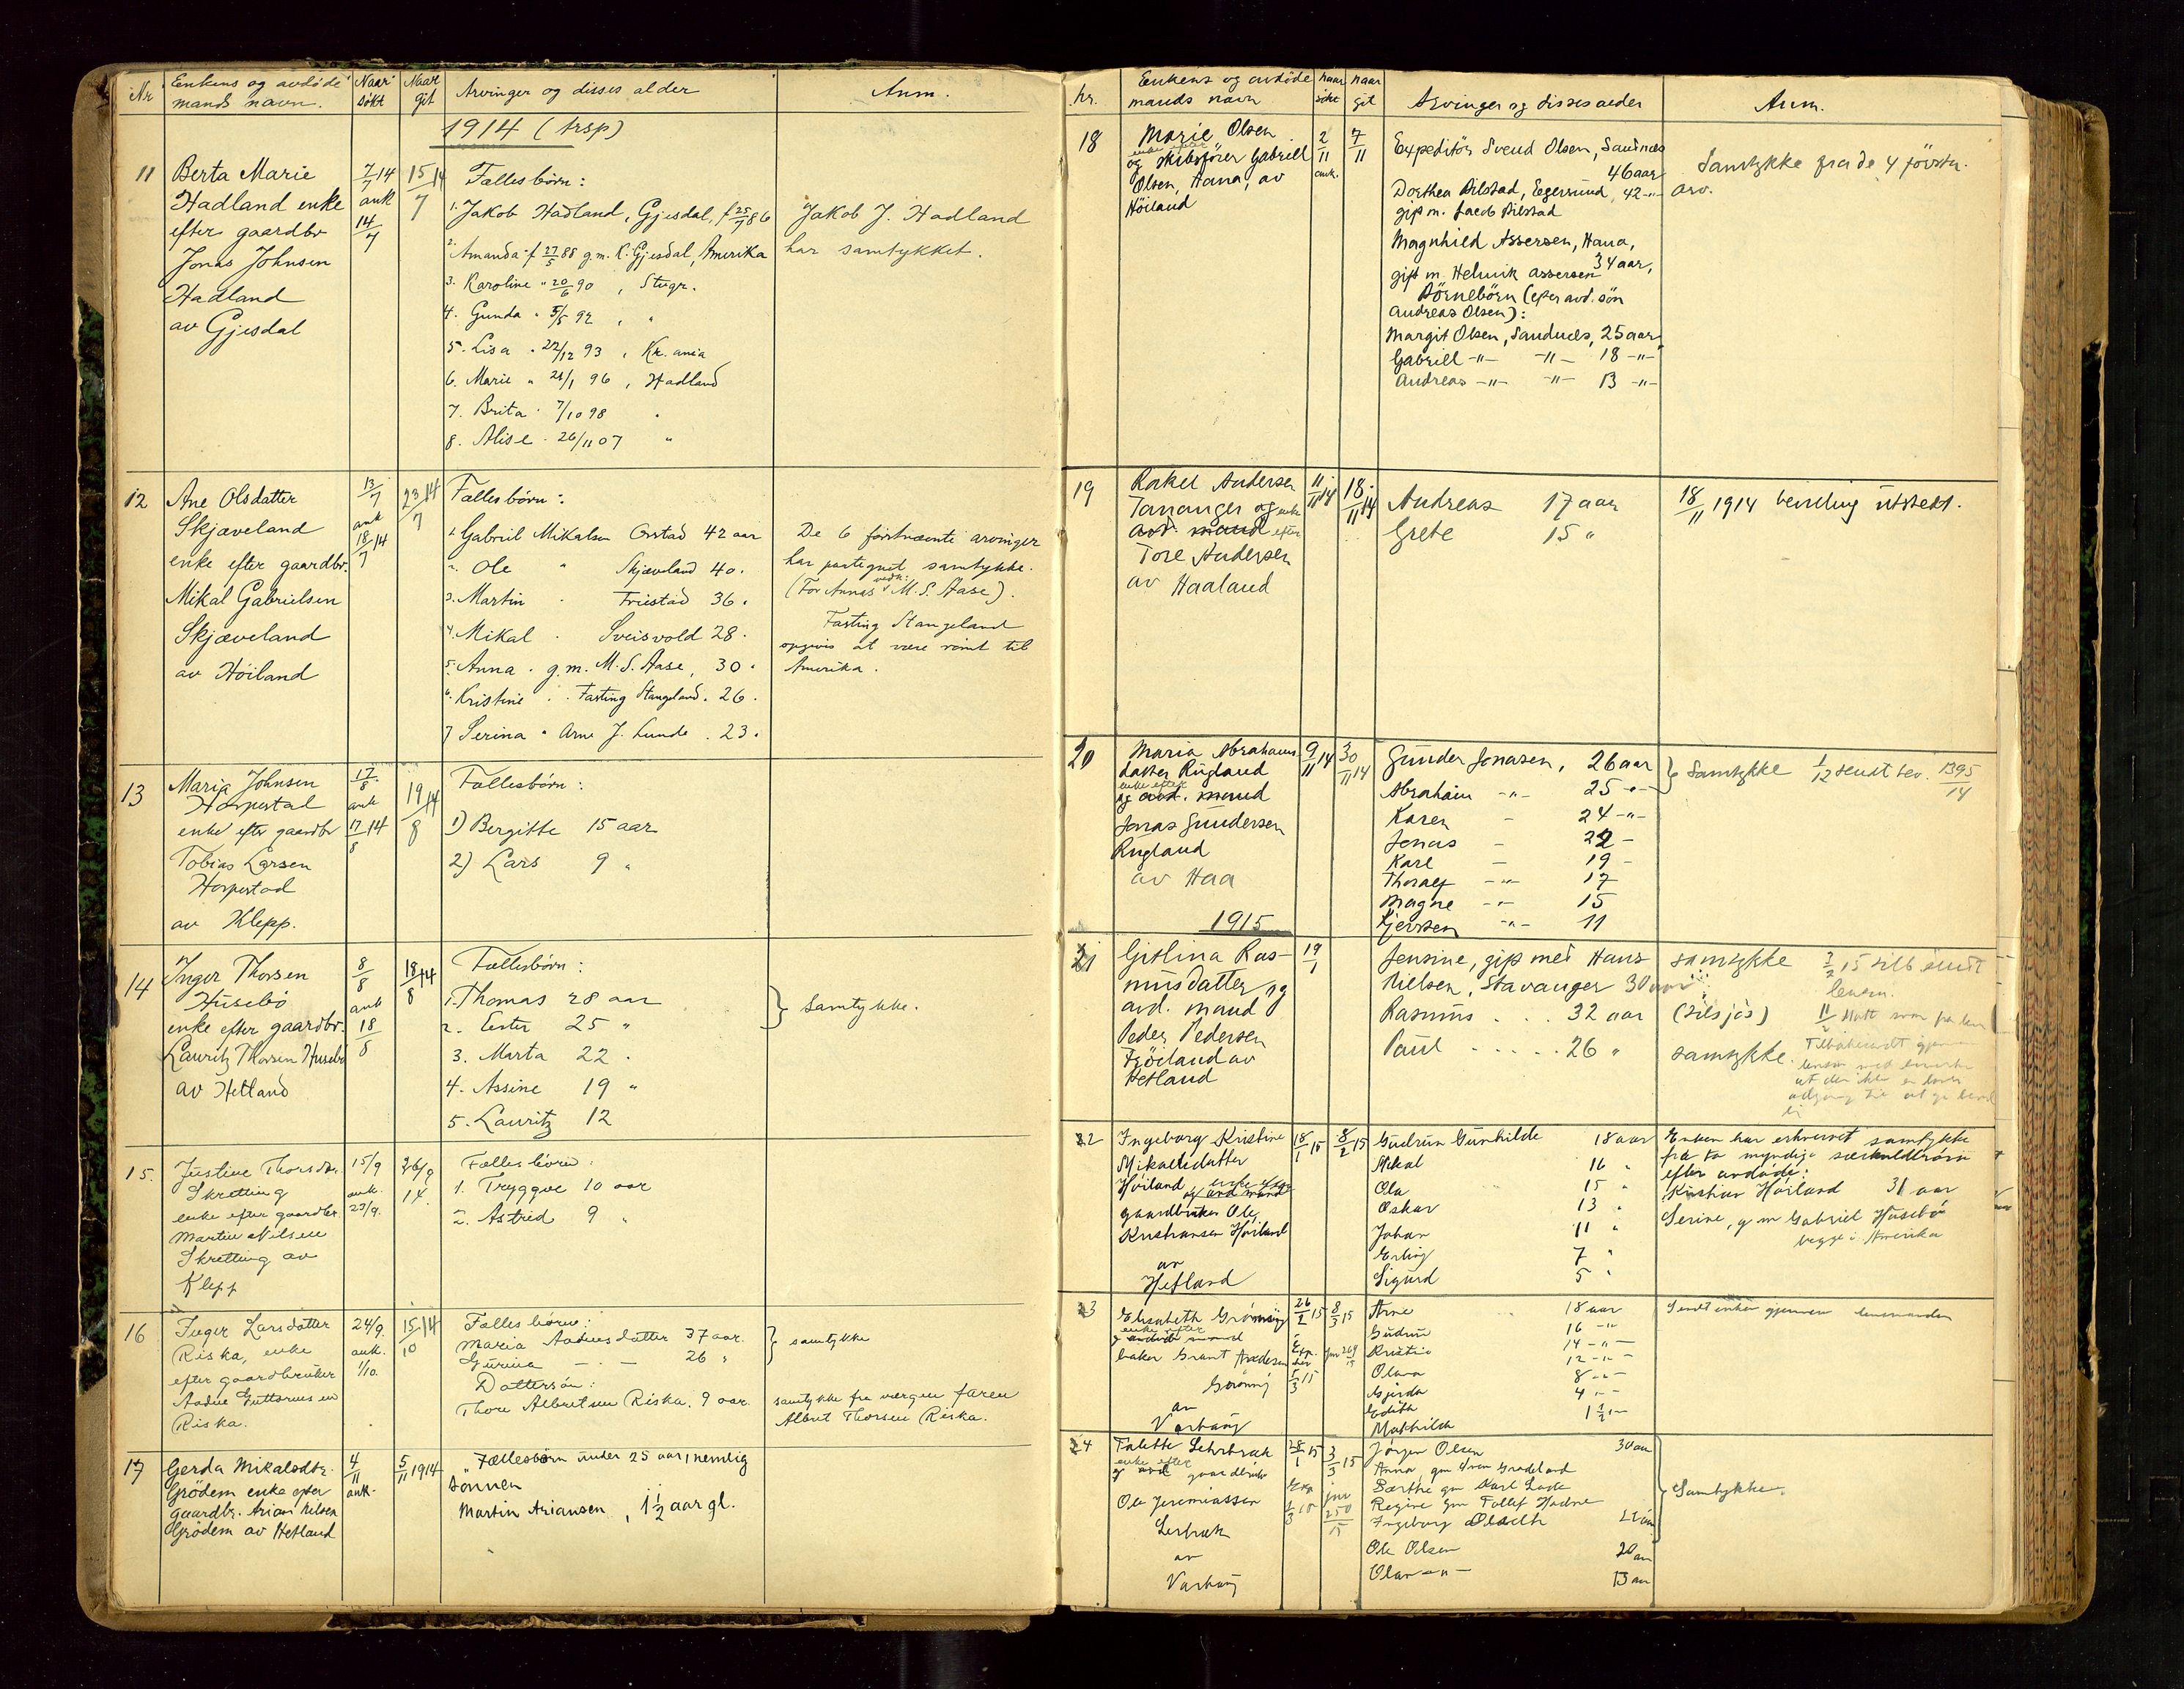 Nr. Enkens og avdöde mands navn. Naar sökt Naar git Arvinger og disses alder Anm.
1914 (trsp)
11 Berta Marie 7/7 14 15/7 14 Fællesbörn:
Hadland enke ank 1. Jakob Hadland, Gjesdal, f 25/7 86 Jakob J. Hadland
efter gaardbr 14/7 2. Amanda f 27/5 88 g.m. K. Gjesdal, Amerika har samtykket.
Jonas Johnsen 3. Karoline " 20/6 90 , Stvgr.
Hadland 4. Gunda " 5/5 92 , "
av Gjesdal 5. Lisa " 22/12 93 , Kr.ania
6. Marie " 28/1 96 , Hadland
7. Brita " 7/10 98 "
8. Alise " 26/11 07 "
12 Ane Olsdatter 13/7 23/7 14 Fællesbörn:
Skjæveland ank 18/7 14 1. Gabriel Mikalsen Orstad 42 aar De 6 förstnævnte arvinger
enke efter gaardbr. 2. Ole " Skjæveland 40 " har paategnet samtykke.
Mikal Gabrielsen 3. Martin " Friestad 36 " (For Annas vedk: M. S. Aase).
Skjæveland 4. Mikal " Sveisvold 28 " Fasting Stangeland
av Höiland 5. Anna " g.m. M. S. Aase, 30 " opgives at være römt til
6. Kristine " " Fasting Stangeland " 26 " Amerika.
7 Serina " Arne J. Lunde " 23 "
13 Maria Johnsen 17/8 19/8 14 Fællesbörn:
Horpestad ank
enke efter gaardbr 17/8 14 1) Bergitte 15 aar
Tobias Larsen 2) Lars 9 "
Horpestad
av Klepp.
14 Inger Thorsen 8/8 18/8 14 Fællesbörn:
Husebö ank 1. Thomas 28 aar } Samtykke.
enke efter gaardbr. 18/8 2. Ester 25 "
Lauritz Thorsen Husebö 3. Marta 22 "
av Hetland 4. Assine 19 "
5. Lauritz 12
15. Justine Thorsdtr. 15/9 26/9 14. Fællesbörn:
Skretting ank. 1. Tryggve 10 aar
enke efter gaardbr. 23/9. 2. Astrid 9 "
Martin Nilsen
Skretting av
Klepp
16 Inger Larsdatter 24/9. 15/10 14 Fællesbörn:
Riska, enke ank. Maria Aadnesdatter 37 aar. } samtykke
efter gaardbruker 1/10. Gurina — " — 26 "
Aadne Guttormsen Dattersön:
Riska. Thore Albretsen Riska. 9 aar. samtykke fra værgen faren
Albret Thorsen Riska.
17 Gerda Mikalsdtr. 4/11 5/11 1914 Fællesbörn under 25 aar, nemlig
Grödem enke efter ank. sönnen
gaardbr. Arian Nilsen Martin Ariansen, 1 1/2 aar gl.
Grödem av Hetland
nr. Enkens og avdöde mands navn naar sökt naar git Arvinger og disses alder Anm.
18 Marie Olsen 2/11 7/11 Expeditör Svend Olsen, Sandnes
enke efter
og skibsförer Gabriell ank. 46 aar Samtykke fra de 4 förstn.
Olsen, Hana, av Dorthea Bilstad, Egersund, 42 -"- arv.
Höiland gift m. Jacob Bilstad
Magnhild Assersen, Hana,
34 aar,
gift m. Helmik Assersen
Börnebörn (efter avd. sön
Andreas Olsen):
Margit Olsen, Sandnes, 25 aar
Gabriell -"- -"- 18 -"-
Andreas -"- -"- 13 -"-
19 Rakel Andersen 11/11 14 18/11 14 Andreas 17 aar 18/11 1914 bevilling utstedt.
Tananger og enke Grete 15 "
avd. mand efter
Tore Andersen
av Haaland
20 Maria Abrahams 9/11 14 30/11 14 Gunder Jonasen, 26 aar } Samtykke 1/12 sendt bev. 1395/14
datter Rugland Abraham -"- 25 -"-
enke efter
og avd. mand Karen - 24 -"-
Jonas Gundersen Jonas - 22 -
Rugland Karl — 19 -
av Haa Thoralf -"- 17
Magne -"- 15
1915 Kjersten -"- 11
21 Gitlina Ras- 19/1 Jensine, gift med Hans samtykke 3/2 15 tilb sendt
musdatter og Nielsen, Stavanger 30 aar lensm.
avd. mand Rasmus . . . 32 aar (tilsjös) 11/2
Peder Pedersen Paul - - - - - 26 " samtykke.
av
Hetland
22 Ingeborg Kristine 18/1 15 8/2 15 Gudrun Gunhilde 18 aar Enken har erhvervet samtykke
Mikalsdatter Mikal 16 " fra to myndige særkuldbörn
Höiland enke efter Ola 15 " efter avdöde:
og avd mand Oskar 13 " Kristian Höiland 31 aar
gaardbruker Ole Johan 11 " Serine, g m Gabriel Husebö
Kristiansen Höiland Erling 7 " begge i Amerika
av Sigurd 5 "
Hetland
23 Elisabeth Gröning 26/2 15 8/3 15 Arne 18 aar Sendt enken gjennem lensmanden
enke efter Gudrun 16 -"-
baker Kristine 14 -"-
av Olava 12 -"-
Varhaug Gjerda 8 -"-
Edith 4 -"-
Mathilde 1 1/2 "-
24 28/1 15 3/3 15 Jörgen Olsen 30 aar
enke efter Anna, gm
gaardbruker Barthe gm Karl
Ole Jeremiassen Regine gm Tollef } Samtykke.
av Ingeborg Olsdtr
Varhaug Ole Olsen 20 aar
Olav -"- 13 aar